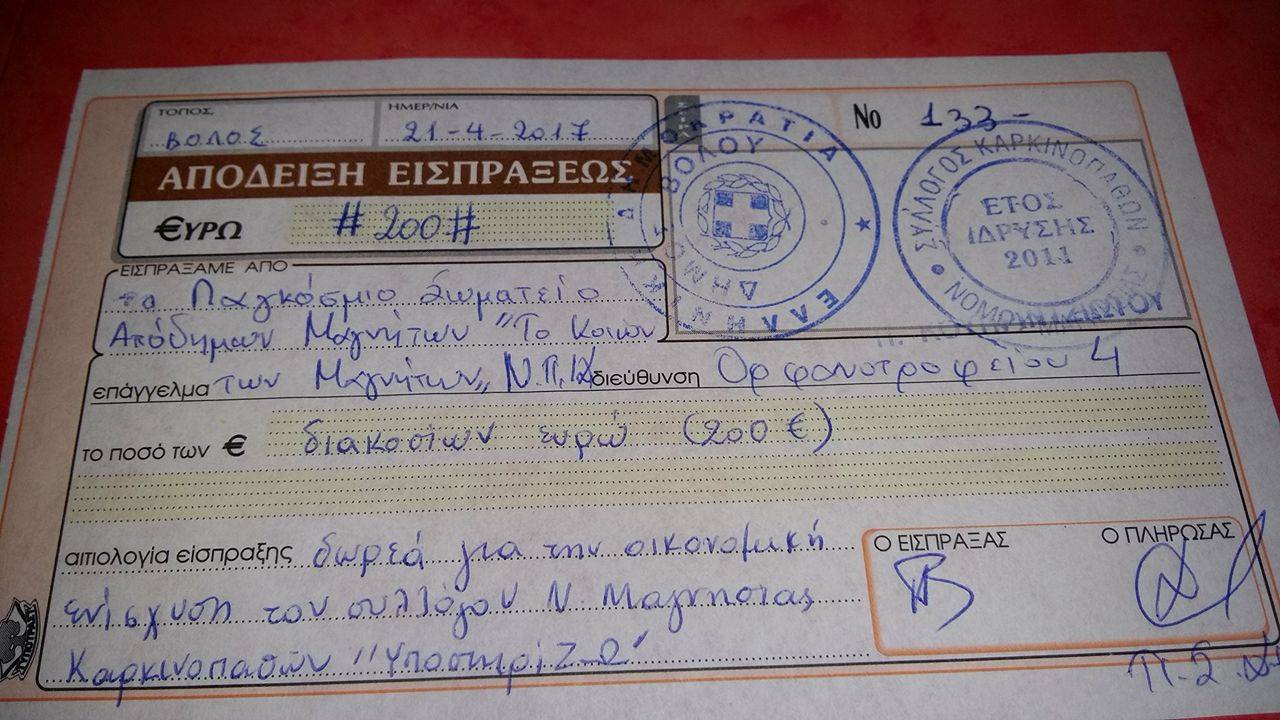 ΤΟΠΟΣ ΗΜΕΡ/ΝΙΑ
ΒΟΛΟΣ 21-4-2017
Νο 133-
ΑΠΟΔΕΙΞΗ ΕΙΣΠΡΑΞΕΩΣ
€ΥΡΩ #200#
ΕΛΛΗΝΙΚΗ ΔΗΜΟΚΡΑΤΙΑ
ΔΗΜΟΣ ΒΟΛΟΥ
ΣΥΛΛΟΓΟΣ ΚΑΡΚΙΝΟΠΑΘΩΝ
ΕΤΟΣ
ΙΔΡΥΣΗΣ
2011
ΕΙΣΠΡΑΞΑΜΕ ΑΠΟ
το Παγκόσμιο Σωματείο
Απόδημων Μαγνήτων "Το Κοινόν
επάγγελμα των Μαγνήτων,, Ν.Π.ΙΔ διεύθυνση Ορφανοτροφείου 4
το ποσό των € διακοσίων ευρώ (200 €)
αιτιολογία είσπραξης δωρεά για την οικονομική
ενίσχυση του συλλόγου Ν. Μαγνησίας
Καρκινοπαθών "ΥποστηρίΖ-Ω"
Ο ΕΙΣΠΡΑΞΑΣ Ο ΠΛΗΡΩΣΑΣ